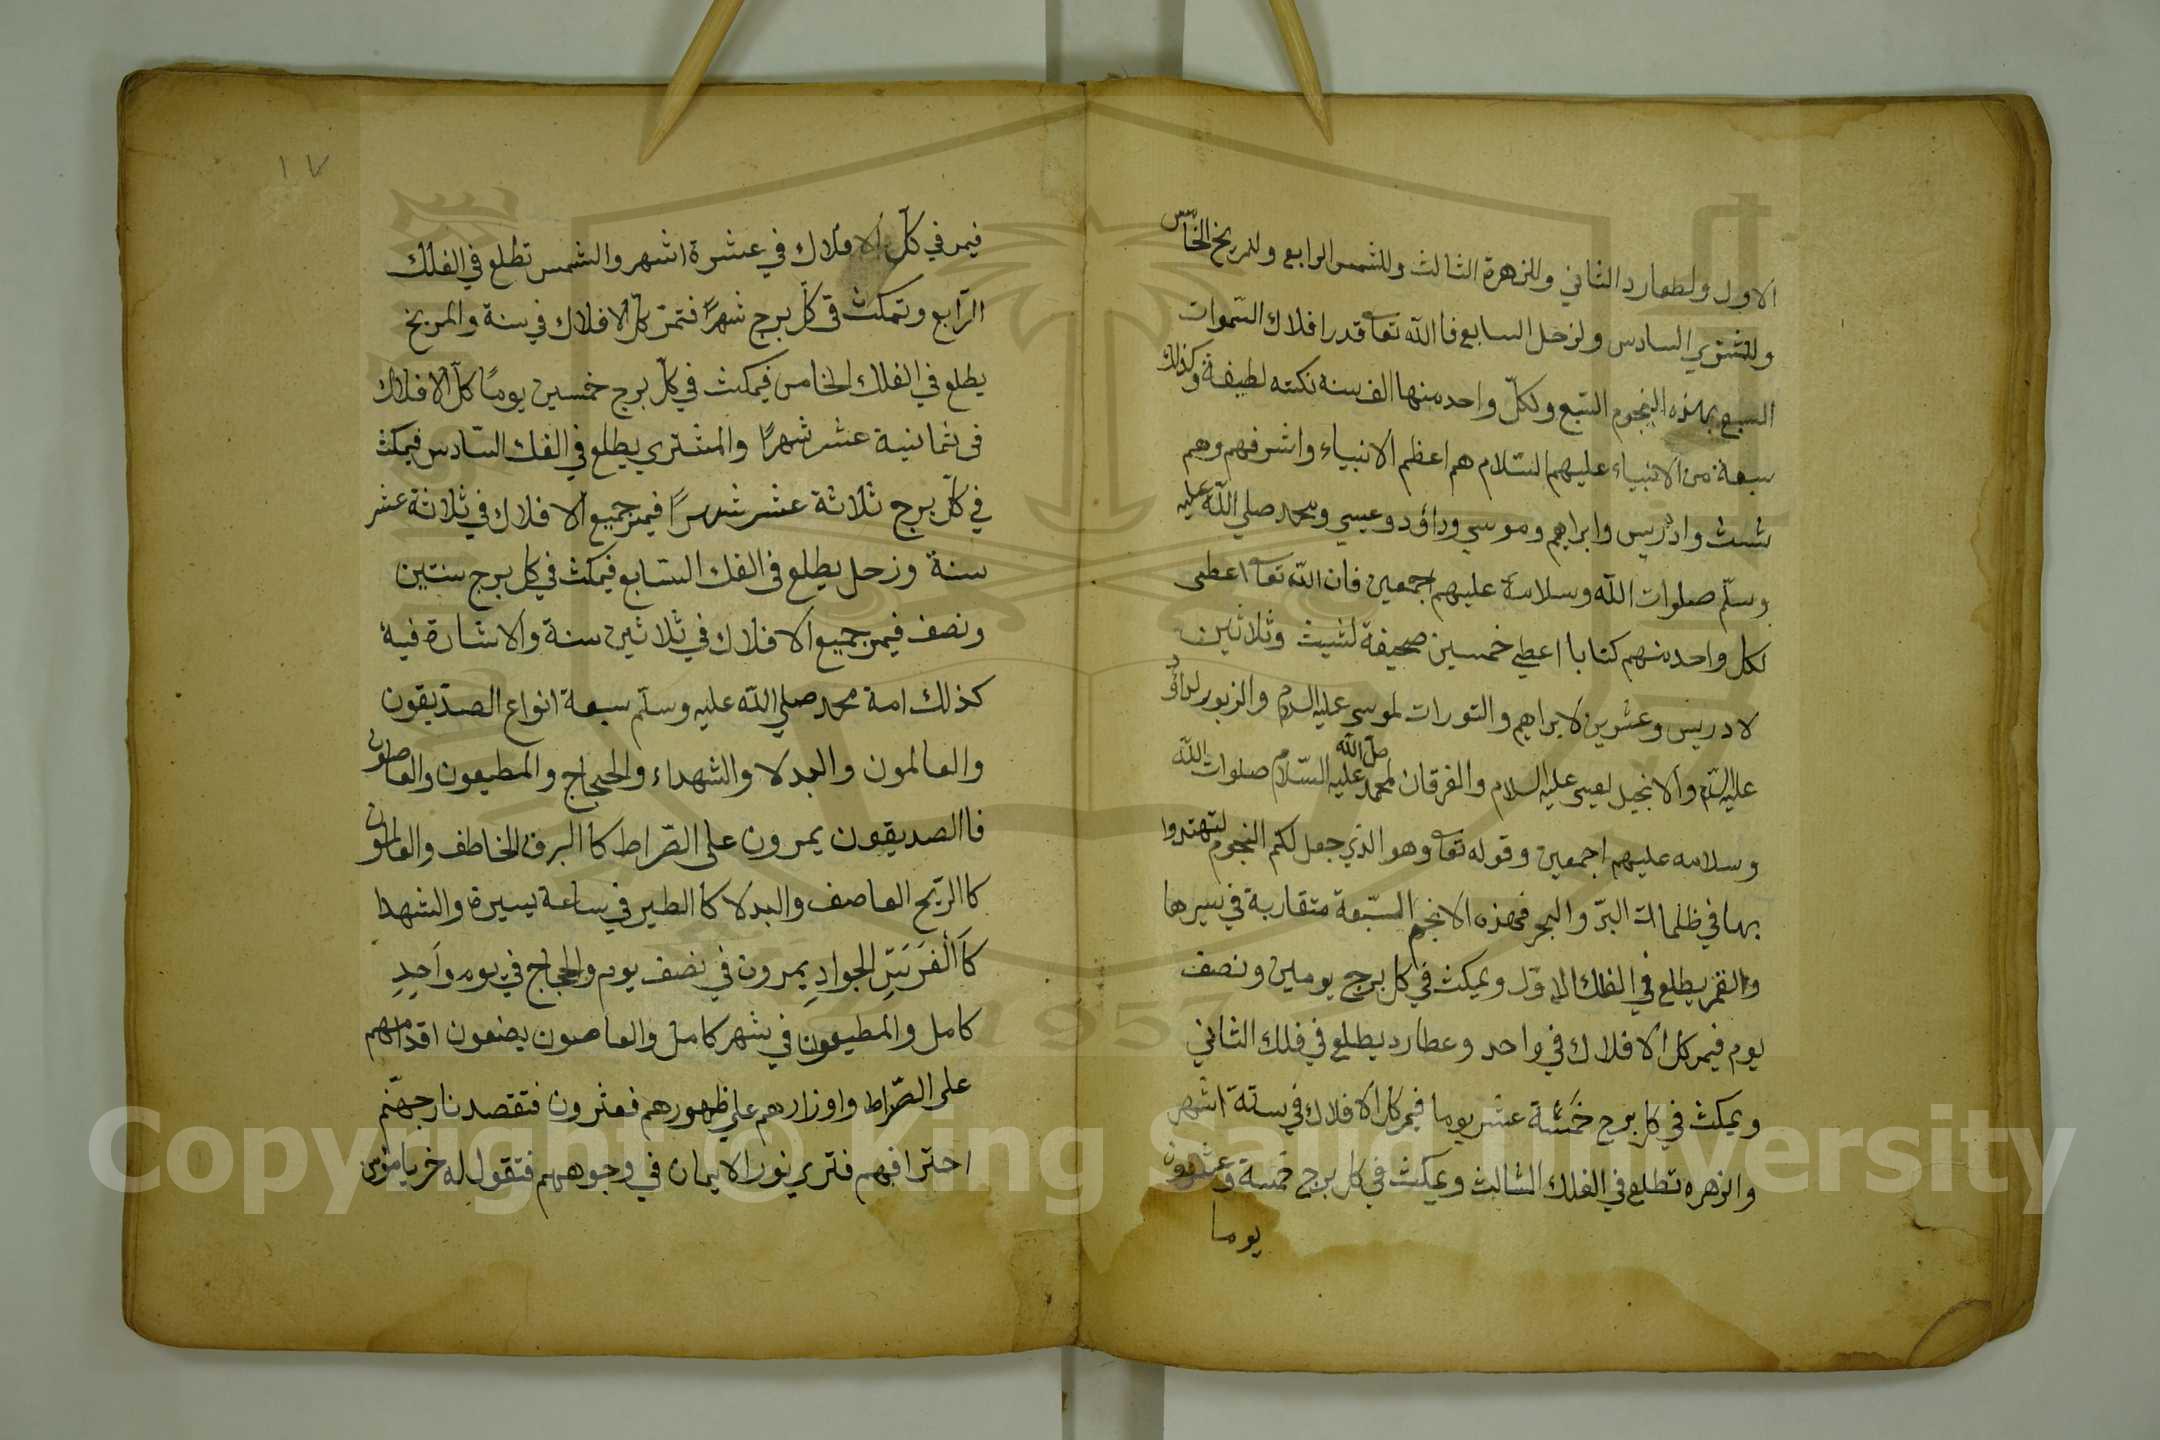 الاول ولعطارد الثاني وللزهرة الثالث وللشمس الرابع وللمريخ الخامس
وللمشتري السادس ولزحل السابع فا الله تعا قدر افلاك السموات
السبع بهذه النجوم السبع ولكل واحد منها الف سنه نكته لطيفة وكذلك
سبعة من الانبياء عليهم السلام هم اعظم الانبياء واشرفهم وهم
شيث وادريس وابراهيم وموسي وداؤد وعيسي ومحمد صلي الله عليه
وسلم صلوات الله وسلامه عليهم اجمعين فان الله تعا اعطى
لكل واحد منهم كتابا اعطي خمسين صحيفة لشيث وثلاثين
لادريس وعشرين لابراهيم والتورات لموسى عليه السلام والزبور لداؤد
عليه السلام والانجيل لعيسى عليه السلام والفرقان لمحمد صلى الله عليه السلام صلوات الله
وسلامه عليهم اجمعين وقوله تعا وهو الذي جعل لكم النجوم لتهتدوا
بها في ظلمات البر والبحر فهذه الانجم السبعة متقاربة في سيرها
والقمر يطلع في الفلك الاول ويمكث في كل برج يومين ونصف
يوم فيمر كل الافلاك في واحد وعطارد يطلع في فلك الثاني
ويمكث في كل برج خمسة عشر يوما فيمر كل الافلاك في ستة اشهر
والزهره تطلع في الفلك الثالث ويمكث في كل برج خمسة وعشرون
يوما
١٧
فيمر في كل الافلاك في عشرة اشهر والشمس تطلع في الفلك
الرابع وتمكث في كل برج شهرًا فتمر كل الافلاك في سنة والمريخ
يطلع في الفلك الخامس فيمكث في كل برج خمسين يومًا كل الافلاك
في ثمانية عشر شهرًا والمشتري يطلع في الفك السادس فيمكث
في كل برج ثلاثة عشر شهرًا فيمر جميع الافلاك في ثلاثة عشر
سنة وزحل يطلع في الفك السابع فيمكث في كل برج سنتين
ونصف فيمر جميع الافلاك في ثلاثين سنة والاشارة فيه
كذلك امة محمد صلي الله عليه وسلم سبعة انواع الصديقون
والعالمون والبدلا والشهداء والحجاج والمطيعون والعاصون
فاالصديقون يمرون على الصراط كاالبرق الخاطف والعالمون
كاالريح العاصف والبدلا كاالطير في ساعة يسيرة والشهدا
كاالفرس الجواد يمرون في نصف يوم والحجاج في يوم واحد
كامل والمطيعون في شهر كامل والعاصون يضعون اقدامهم
على الصراط واوزارهم علي ظهورهم فعثرون فتقصد نار جهنم
احتراقهم فتري نور الايمان في وجوههم فتقول له خر يا مؤمن
Copyright © King Saud University
1957